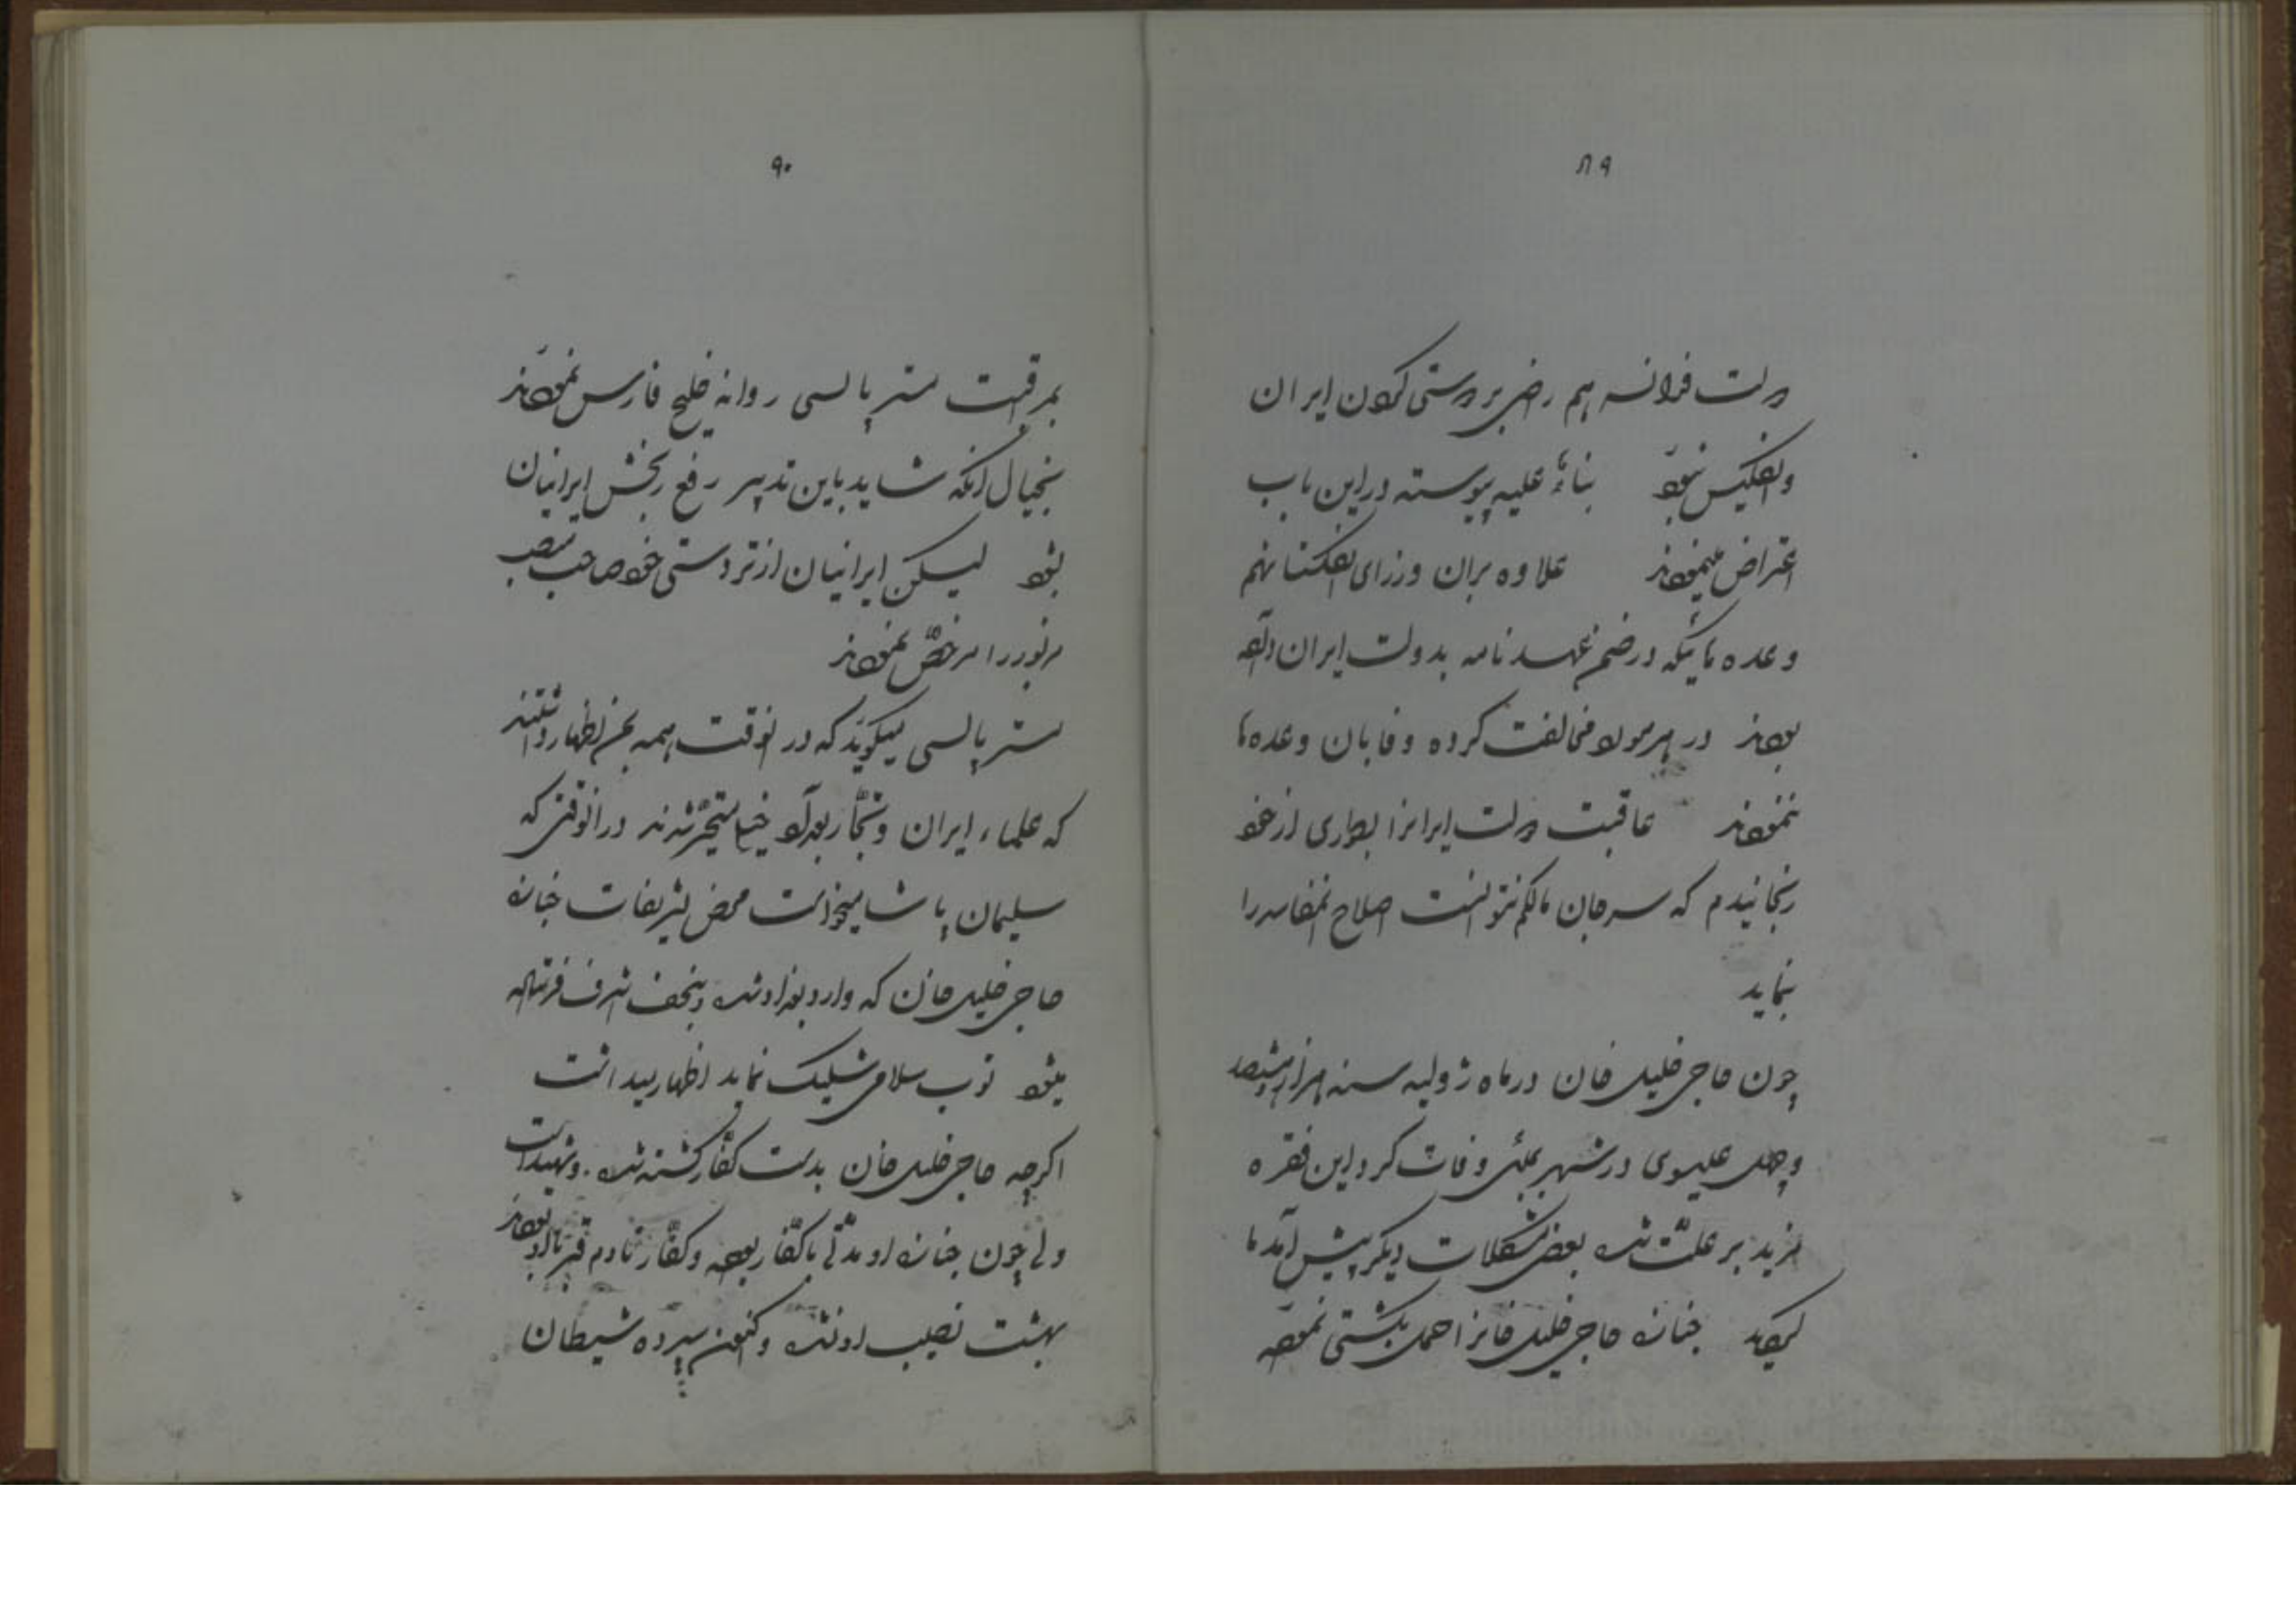 ۸۹
دولت فرانسه هم راضی بر دوستی کردن ایران
و انگلیس نبود بناءً علیه پیوسته در این باب
اعتراض مینمودند علاوه بران وزرای انگلستان هم
وعده هائیکه در ضمن عهدنامه بدولت ایران داده
بودند در هر مورد مخالفت کرده وفا بان وعده ها
ننمودند عاقبت دولت ایرانرا بطوری از خود
رنجانیدم که سرجان مالکم نتوانست اصلاح انمفاسد را
بنماید
چون حاجی خلیل خان در ماه ژولیه سنه هزار و هشتصد
و چهل عیسوی در شهر بمبئی وفات کرد این فقره
مزید بر علت شده بعضی مشکلات دیگر پیش آمد ما
گردید جنازه حاجی خلیل خانرا حمل بکشتی نموده
۹۰
بمرافقت مستر پالسی روانه خلیج فارس نمودند
بخیال آنکه شاید باین تدبیر رفع رنجش ایرانیان
بشود لیکن ایرانیان از تردستی خود صاحب منصب
مزبور را مرخص نمودند
مستر پالسی میگوید که در انوقت همه بمن اظهار داشتند
که علماء ایران و تجار بغداد خیلی متحیر شدند در انوقتی که
سلیمان پاشا میخواست محض تشریفات جنازه
حاجی خلیل خان که وارد بغداد شده و بنجف اشرف فرستاده
میشود توپ سلامی شلیک نماید اظهار میداشت
اگرچه حاجی خلیل خان بدست کفار کشته شده و شهید است
ولی چون جنازه او مدتی با کفار بوده و کفار تا دم قبر با او بودند
بهشت نصیب او نشده و اکنون سپرده شیطان